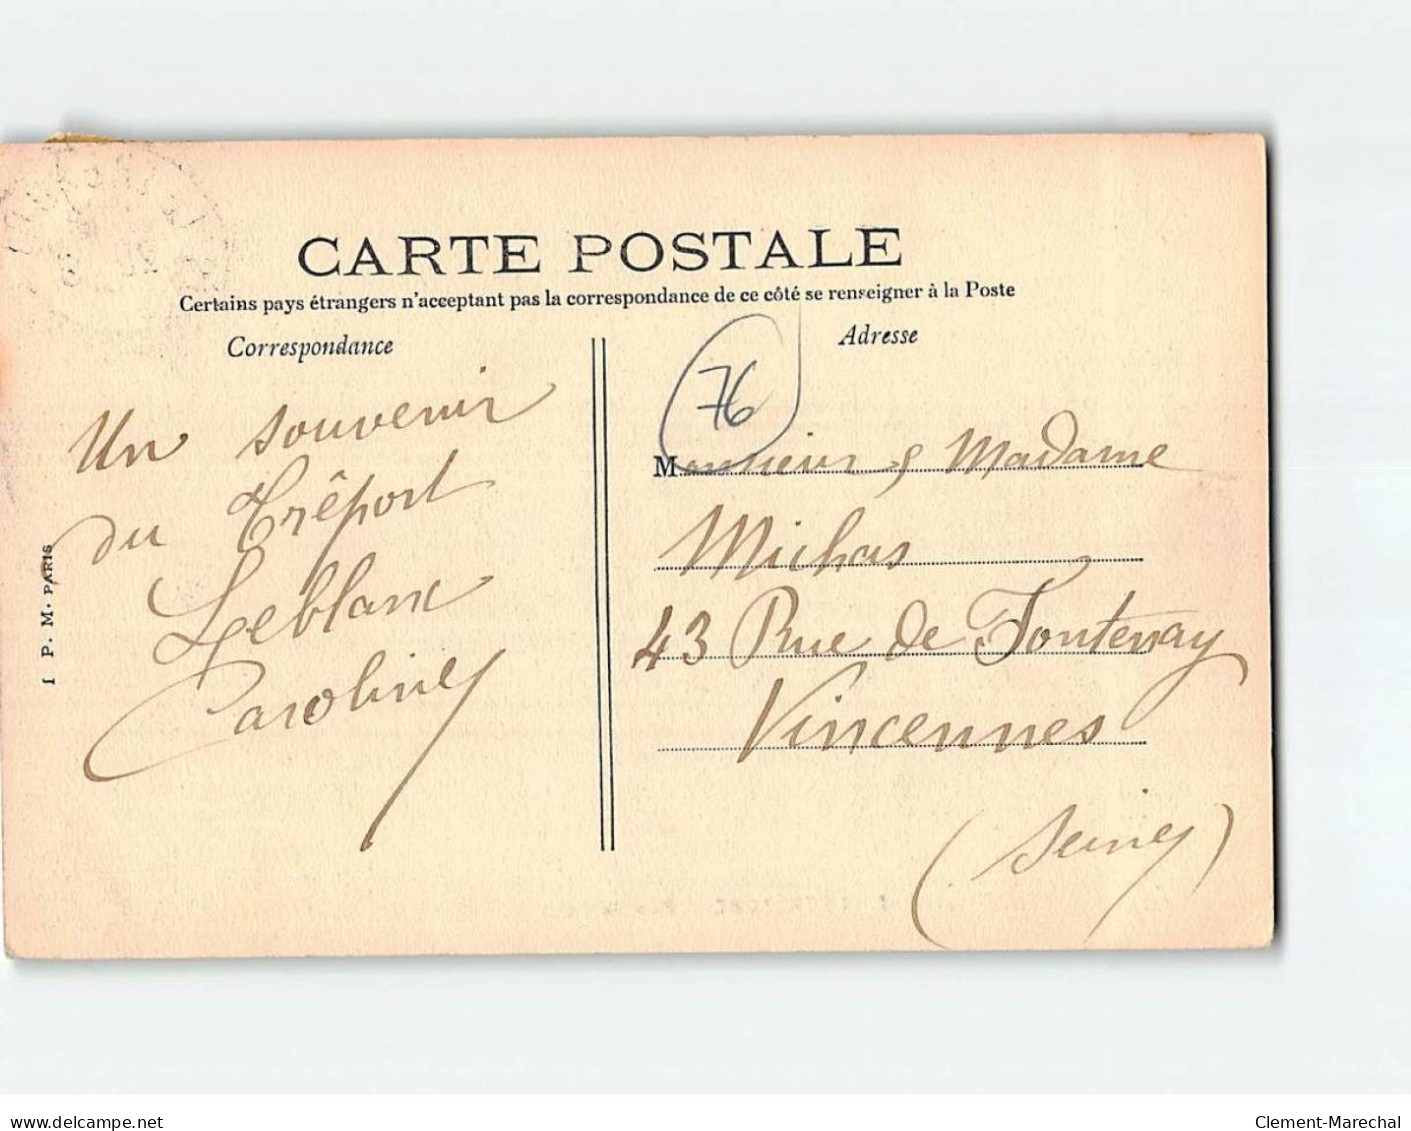 CARTE POSTALE
Certains pays étrangers n'acceptant pas la correspondance de ce côté se renseigner à la Poste
Correspondance
Un souvenir
du Tréport
Leblanc
Caroline
I P. M. PARIS
Adresse
76
Monsieur & Madame
Michas
43 Rue de Fontenay
Vincennes
(Seine)
www.delcampe.net
Clement-Marechal